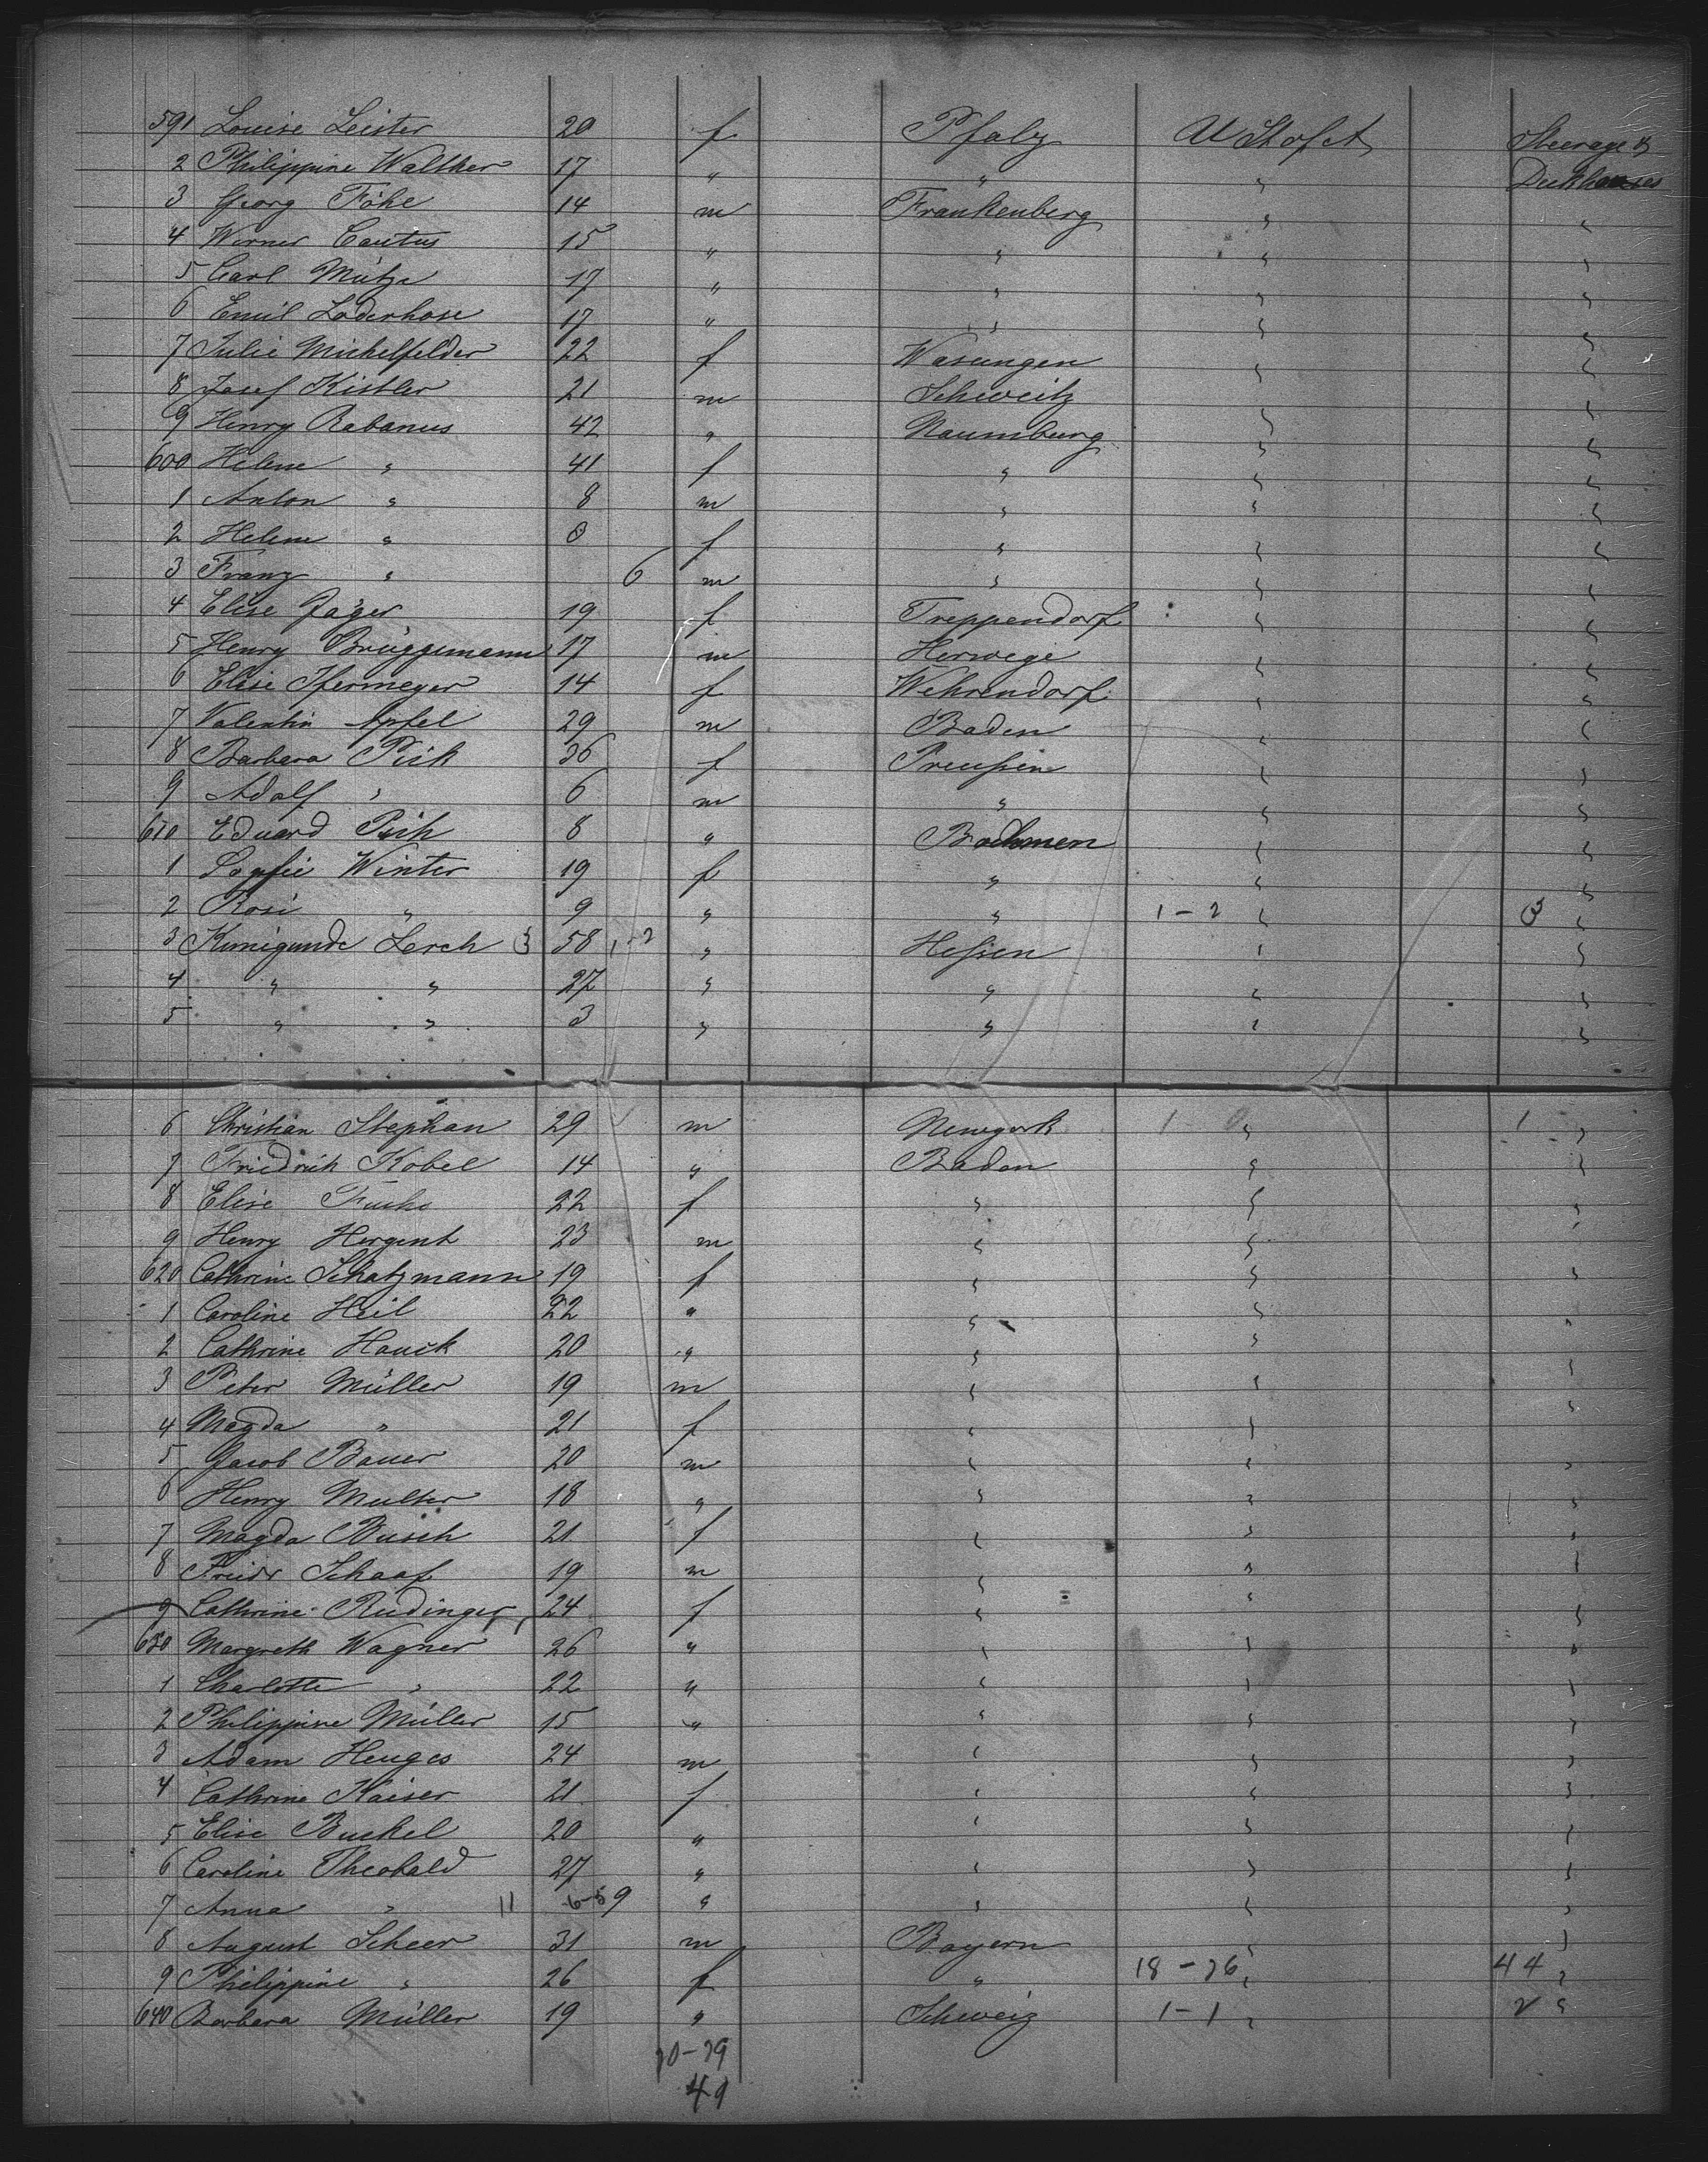 591 Louise Leister 20 f Pfalz U St of A Steerage &
2 Philippine Walther 17 " " " Deckhouses
3 Georg Föhe 14 m Frankenberg " "
4 Werner Cautus 15 " " " "
5 Carl Mütze 17 " " " "
6 Emil Loderhose 17 " " " "
7 Julie Michelfelder 22 f Wasungen " "
8 Josef Kistler 21 m Schweitz " "
9 Henry Rabanus 42 " Naumburg " "
600 Helene " 41 f " " "
1 Anton " 8 m " " "
2 Helene " f " " "
3 Franz " 6 m " " "
4 Elise Jäger 19 f Treppendorf " "
5 Henry Brüggemann 17 m Herwege " "
6 Elise Ifermeyer 14 f Wehrendorf " "
7 Valentin Apfel 29 m Baden " "
8 Barbara Pick 36 f Preußen " "
9 Adolf " 6 m " " "
610 Eduard Pick 8 " Boehmen " "
1 Sophie Winter 19 f " " "
2 Rosi " 9 " " 1-2 " 3 "
3 Kunigunde Lerch 3 58 1-2 " Heßen " "
4 " " 27 " " " "
5 " " 3 " " " "
6 Christian Stephan 29 m Newyork 1 " 1 "
7 Friedrich Kobel 14 " Baden " "
8 Elise Fuchs 22 f " " "
9 Henry Hergent 23 m " " "
620 Cathrine Schatzmann 19 f " " "
1 Caroline Heil 22 " " " "
2 Cathrine Hauck 20 " " " "
3 Peter Müller 19 m " " "
4 Magda " 21 f " " "
5 Jacob Bauer 20 m " " "
6 Henry Multer 18 " " " "
7 Magda Busch 21 f " " "
8 Friedr Schaaf 19 m " " "
9 Cathrine Rudinger 24 f " " "
630 Margreth Wagner 26 " " " "
1 Charlotte " 22 " " " "
2 Philippine Müller 15 " " " "
3 Adam Henges 24 m " " "
4 Cathrine Kaiser 21 f " " "
5 Elise Buckel 20 " " " "
6 Caroline Theobald 27 " " " "
7 Anna " 11 6-5 9 " " " "
8 August Scheer 31 m Bayern " "
9 Philippine " 26 f " 18-26 " 44 "
640 Barbara Müller 19 " Schweiz 1-1 " 2 "
20-29
49